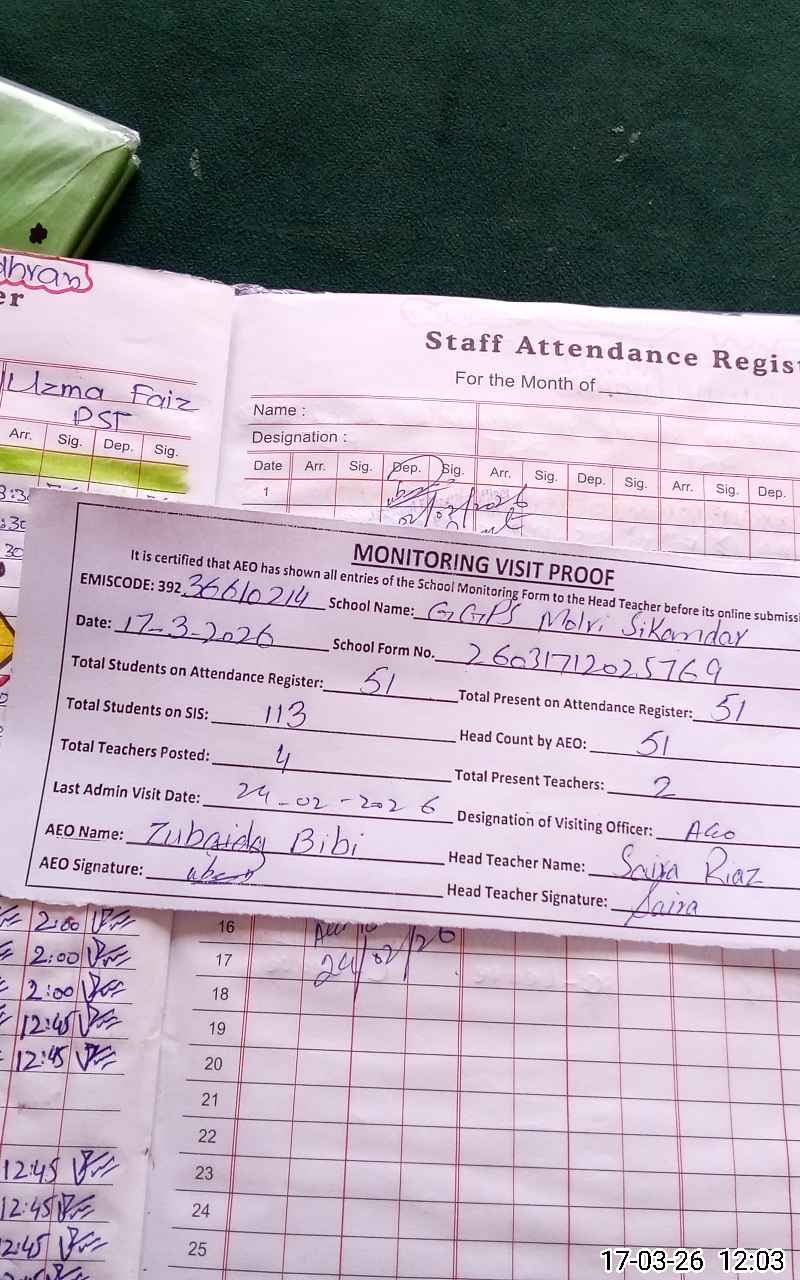 dhran
er
Uzma Faiz
PST
Arr. Sig. Dep. Sig.
Staff Attendance Regist
For the Month of
Name :
Designation :
Date Arr. Sig. Dep. Sig. Arr. Sig. Dep. Sig. Arr. Sig. Dep.
1
02/02/2026
MONITORING VISIT PROOF
It is certified that AEO has shown all entries of the School Monitoring Form to the Head Teacher before its online submissi
EMISCODE: 392 36610214 School Name: GGPS Molvi Sikandar
Date: 17-3-2026 School Form No. 26031712025769
Total Students on Attendance Register: 51 Total Present on Attendance Register: 51
Total Students on SIS: 113 Head Count by AEO: 51
Total Teachers Posted: 4 Total Present Teachers: 2
Last Admin Visit Date: 24-02-2026 Designation of Visiting Officer: AEO
AEO Name: Zubaida Bibi Head Teacher Name: Saira Riaz
AEO Signature: Head Teacher Signature: Saira
2:00 16
2:00 17 24/02/26
2:00 18
12:45 19
12:45 20
21
22
12:45 23
12:45 24
2:45 25
17-03-26 12:03